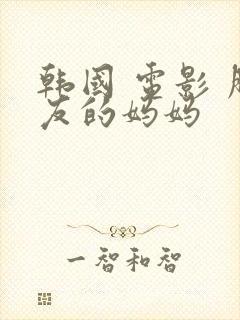 韩国 电影
友的妈妈
一智和智